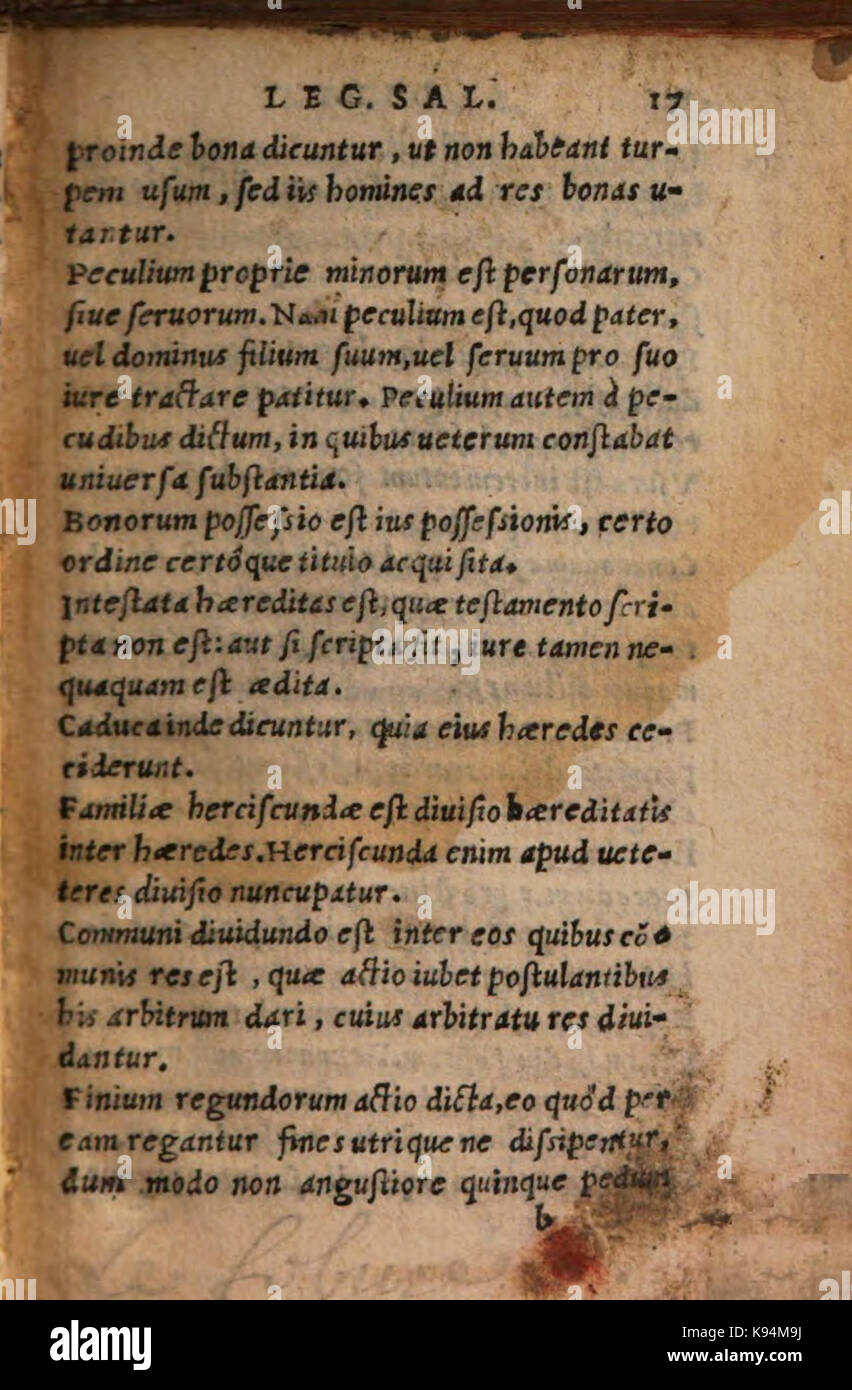 LEG. SAL. 17
proinde bona dicuntur, ut non habeant tur-
pem uſum, ſed iis homines ad res bonas u-
tantur.
Peculium proprie minorum eſt perſonarum,
ſiue ſeruorum. Nam peculium eſt, quod pater,
uel dominus filium ſuum, uel ſeruum pro ſuo
iure tractare patitur. Peculium autem à pe-
cudibus dictum, in quibus ueterum conſtabat
uniuerſa ſubſtantia.
Bonorum poſſeſsio eſt ius poſſeſsionis, certo
ordine certóque titulo acquiſita.
Inteſtata hæreditas eſt, quæ teſtamento ſcri-
pta non eſt: aut ſi ſcripta ſit, iure tamen ne-
quaquam eſt ædita.
Caduca inde dicuntur, quia eius hæredes ce-
ciderunt.
Familiæ herciſcundæ eſt diuiſio hæreditatis
inter hæredes. Herciſcunda enim apud uete-
teres diuiſio nuncupatur.
Communi diuidundo eſt inter eos quibus cõ
munis res eſt, quæ actio iubet poſtulantibus
his arbitrum dari, cuius arbitratu res diui-
dantur.
Finium regundorum actio dicta, eo quòd per
eam regantur fines utrique ne diſsipentur,
dum modo non anguſtiore quinque pedum
b
alamy
Image ID: K94M9J
www.alamy.com